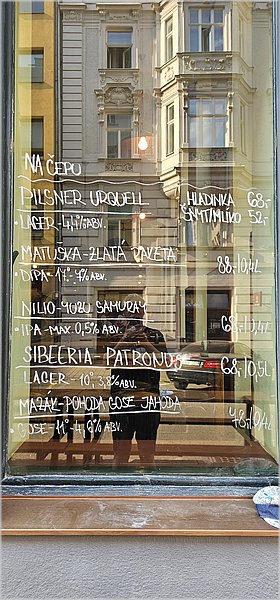 NA ČEPU
PILSNER URQUELL HLADINKA 68,-
• LAGER - 4,4% ABV. ŠNYT/MLÍKO 52,-
MATUŠKA - ZLATÁ RAKETA
• DIPA - 17° - 7% ABV. 88,-/0,4L
NILIO - YUZU SAMURAY
• IPA - MAX. 0,5% ABV. 68,-/0,4L
SIBEERIA - PATRONUS 68,-/0,5L
LAGER - 10°, 3,8% ABV.
MAZÁK - POHODA GOSE JAHODA
• GOSE - 11° - 4,6% ABV. 78,-/0,4L